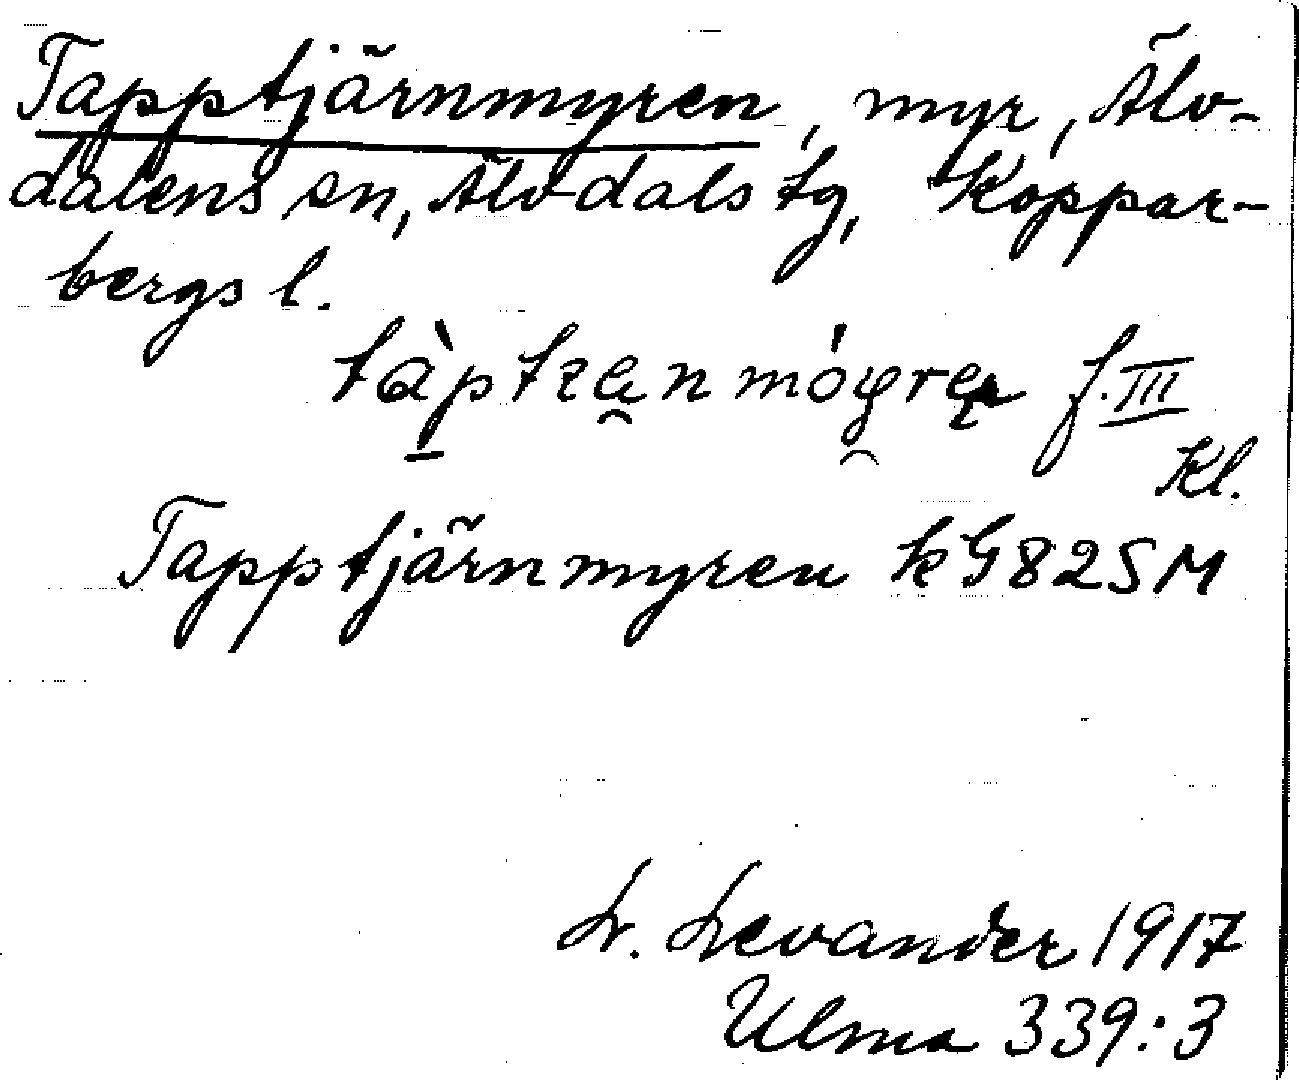 Tapptjärnmyren, myr, Älv-
dalens sn, Älvdals tg, Koppar-
bergs l.
f. III
Kl.
Tapptjärnmyren kG82SM
L. Levander 1917
Ulma 339:3